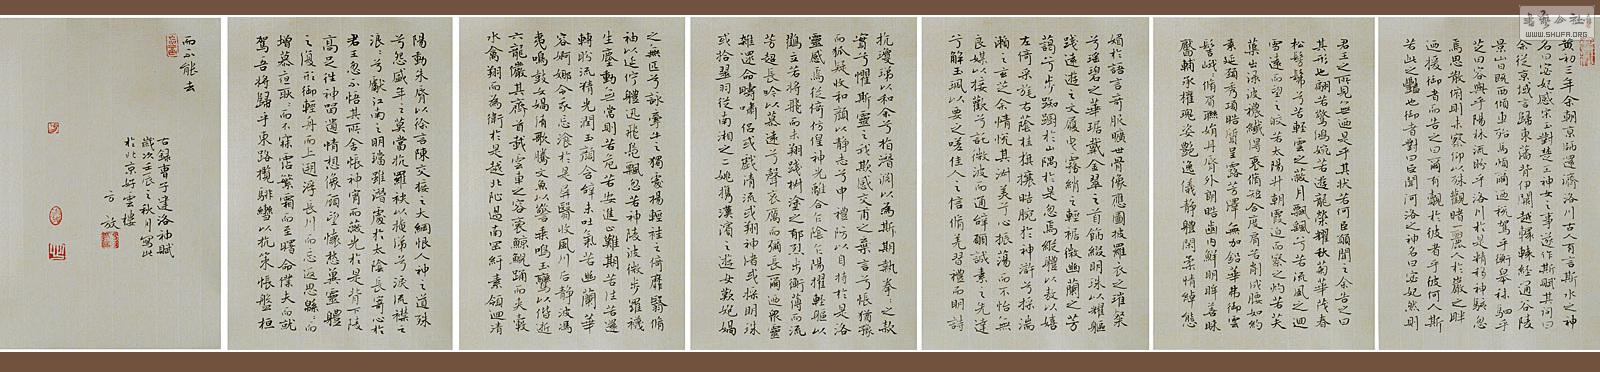 黄初三年余朝京師還濟洛川古人有言斯水之神
名曰宓妃感宋玉對楚王神女之事遂作斯賦其詞曰
余從京域言歸東藩背伊闕越轘轅經通谷陵
景山日既西傾車殆馬煩爾迺税駕乎蘅皋秣駟乎
芝田容與乎陽林流眄乎洛川於是精移神駭忽
焉思散俯則未察仰以殊觀睹一麗人於巖之畔
迺援御者而告之曰爾有覿於彼者乎彼何人斯
若此之艷也御者對曰臣聞河洛之神名曰宓妃然則
君王之所見無迺是乎其狀若何臣願聞之余告之曰
其形也翩若驚鴻婉若遊龍榮耀秋菊華茂春
松髣髴兮若輕雲之蔽月飄颻兮若流風之迴
雪遠而望之皎若太陽升朝霞迫而察之灼若芙
蕖出渌波穠纖得衷脩短合度肩若削成腰如約
素延頸秀項皓質呈露芳澤無加鉛華弗御雲
髻峨峨脩眉聯娟丹唇外朗皓齒內鮮明眸善睞
靨輔承權瓌姿艷逸儀靜體閑柔情綽態
媚於語言奇服曠世骨像應圖披羅衣之璀粲
兮珥瑶碧之華琚戴金翠之首飾綴明珠以耀軀
踐遠遊之文履曳霧綃之輕裾微幽蘭之芳
藹兮步踟躕於山隅於是忽焉縱體以遨以嬉
左倚采旄右蔭桂旗攘皓腕於神滸兮採湍
瀨之玄芝余情悅其淑美兮心振蕩而不怡無
良媒以接歡兮託微波而通辭願誠素之先達
兮解玉珮以要之嗟佳人之信脩羌習禮而明詩
抗瓊珶以和余兮指潛淵以為斯期執眷眷之款
實兮懼斯靈之我欺感交甫之棄言兮悵猶豫
而狐疑收和顏以静志兮申禮防以自持於是洛
靈感焉徙倚彷徨神光離合乍陰乍陽擢輕軀以
鶴立若將飛而未翔踐椒塗之郁烈步蘅薄而流
芳超長吟以慕遠兮聲哀厲而彌長爾迺衆靈
雜遝命疇嘯侶或戲清流或翔神渚或採明珠
或拾翠羽從南湘之二妃攜漢濱之遊女歎匏媧
之無匹兮詠牽牛之獨處揚輕袿之倚靡翳脩
袖以延佇體迅飛鳧飄忽若神陵波微步羅襪
生塵動無常則若危若安進止難期若往若還
轉眄流精光潤玉顏含辭未吐氣若幽蘭華
容婀娜令我忘飡於是屏翳收風川后靜波馮
夷鳴鼓女媧清歌騰文魚以警乘鳴玉鑾以偕逝
六龍儼其齊首載雲車之容裔鯨鯢踊而夾轂
水禽翔而為衛於是越北沚過南岡紆素領迴清
陽動朱唇以徐言陳交接之大綱恨人神之道殊
兮怨盛年之莫當抗羅袂以掩涕兮淚流襟之
浪浪兮獻江南之明璫雖潛處於太陰長寄心於
君王忽不悟其所舍悵神宵而蔽光於是背下陵
高足往神留遺情想像顧望懷愁冀靈體
之復形御輕舟而上遡浮長川而忘返思緜緜而
增慕夜耿耿而不寐霑繁霜而至曙命僕夫而就
駕吾將歸乎東路攬騑轡以抗策悵盤桓
而不能去
右錄曹子建洛神賦
歲次壬辰之秋月寫此
於北京好雲樓
方放
WWW.SHUFA.ORG